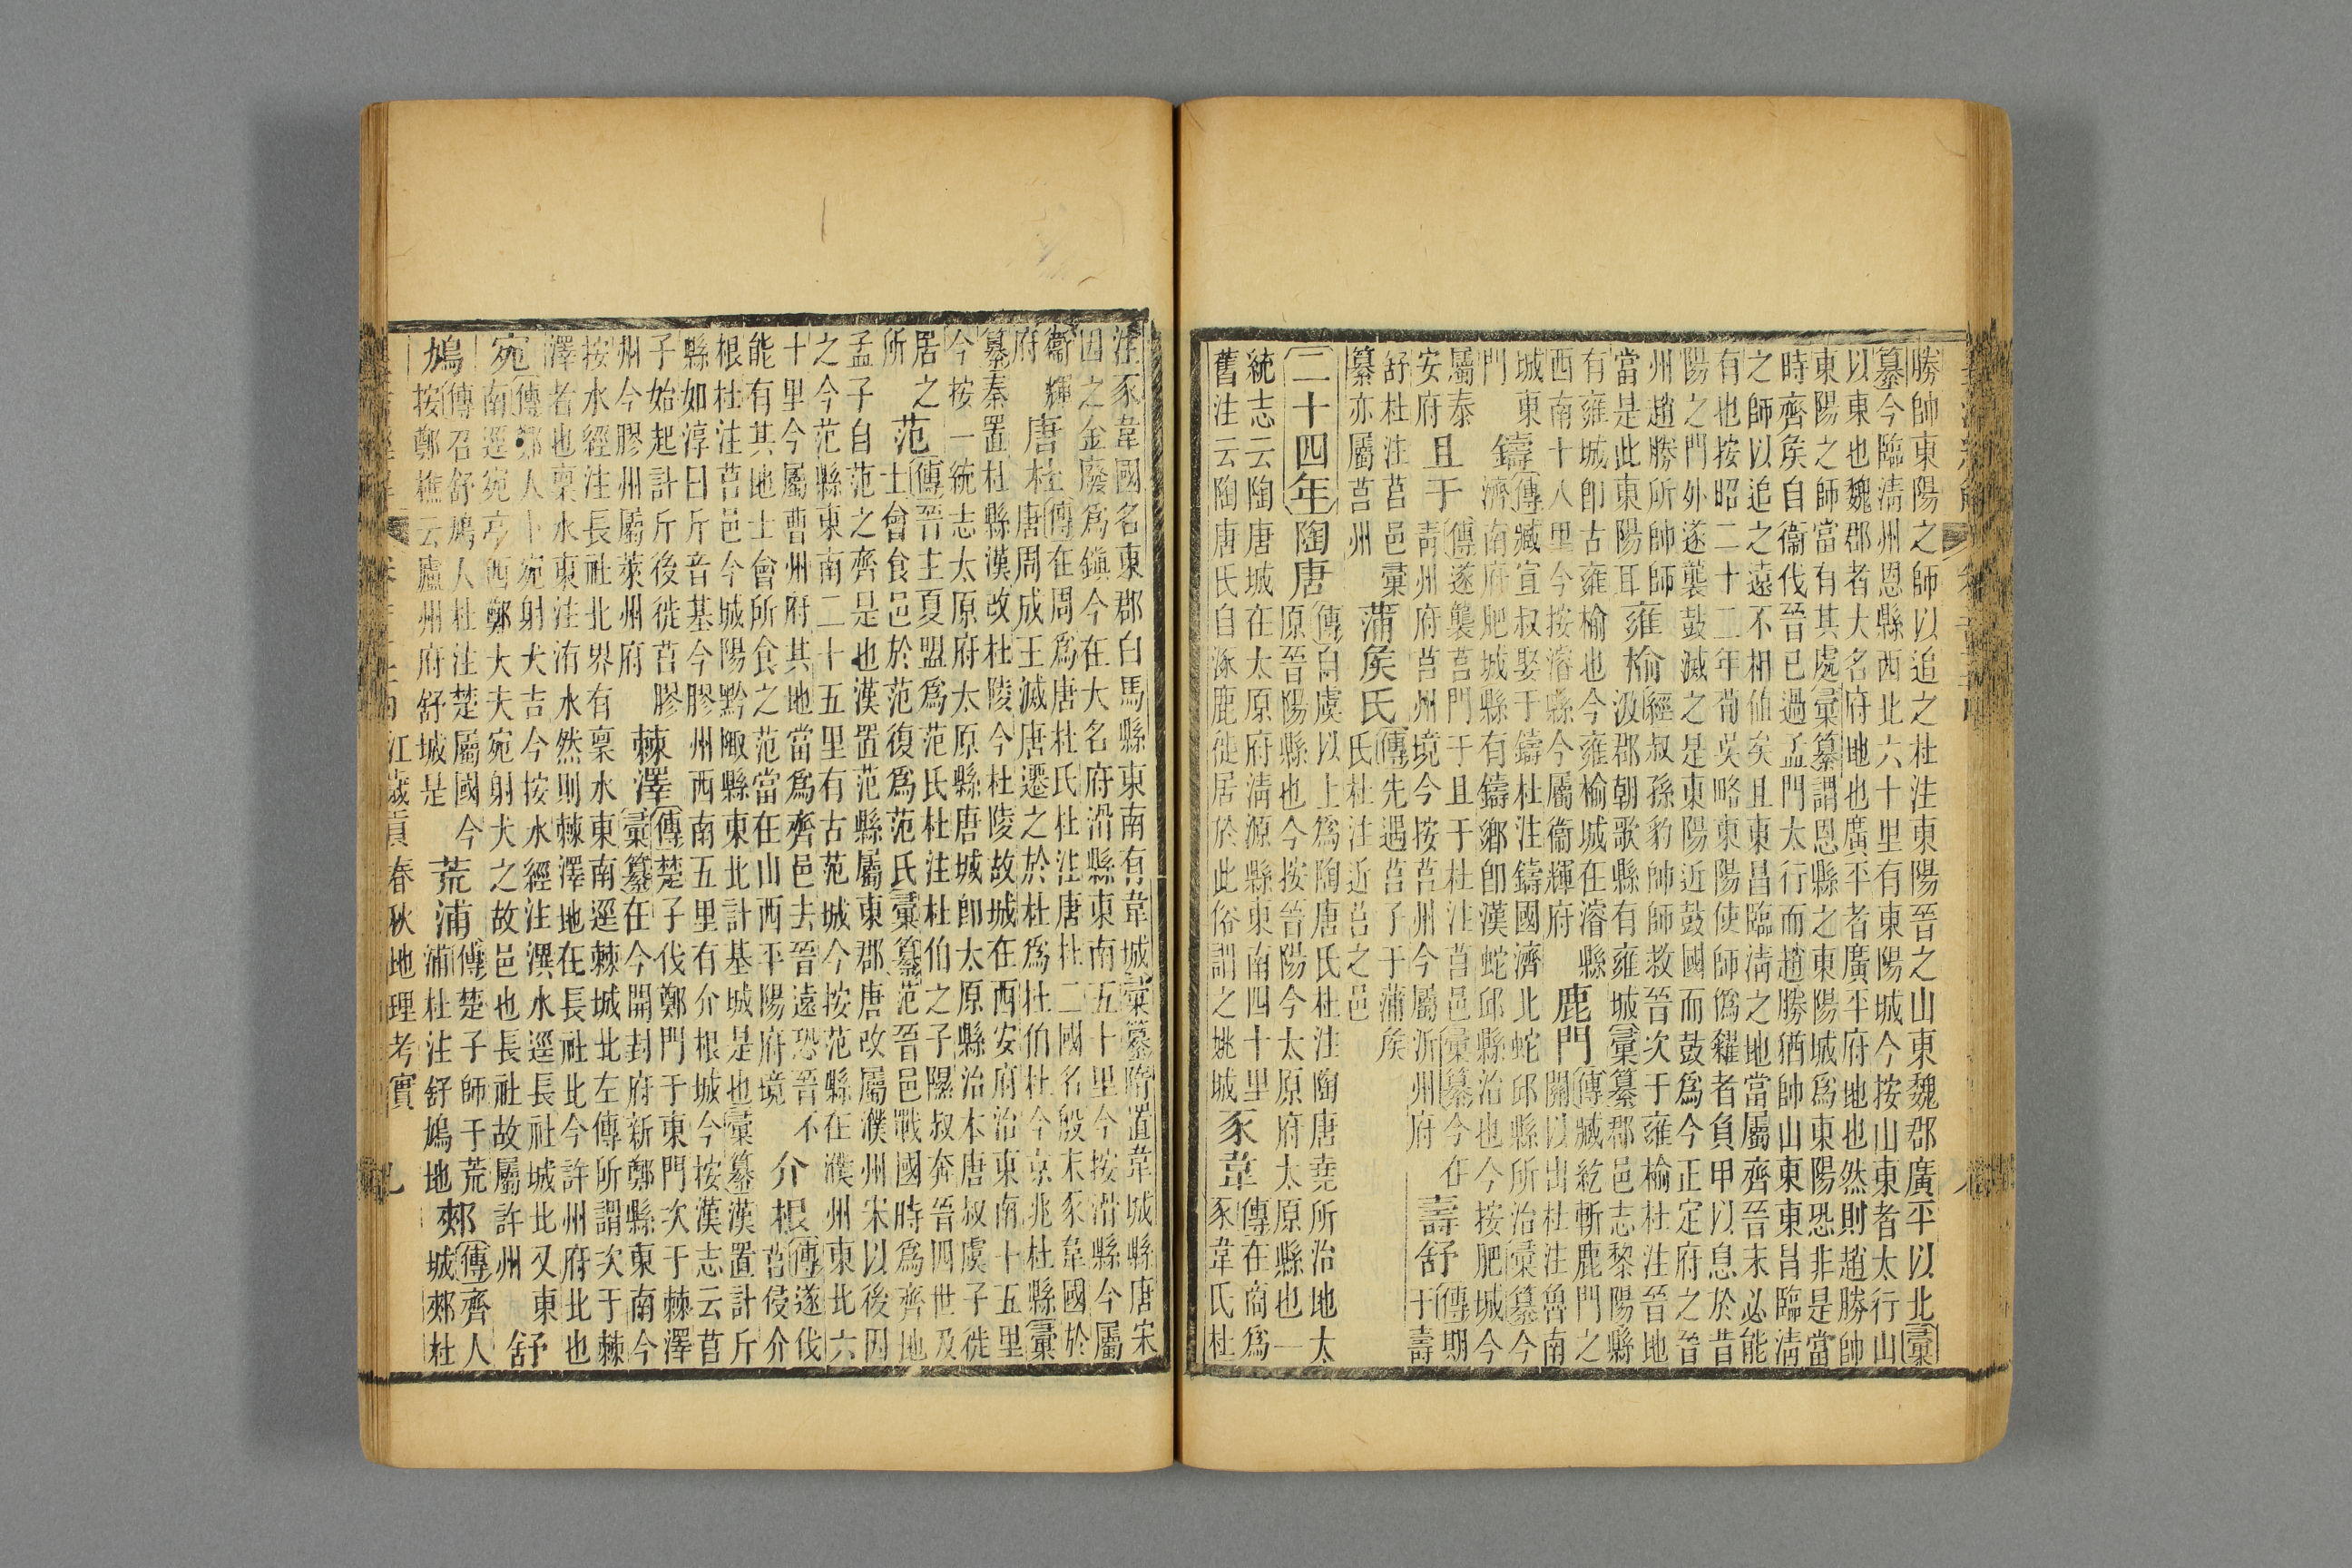 勝帥東陽之師以追之杜注東陽晉之山東魏郡廣平以北彙
纂今臨清州恩縣西北六十里有東陽城今按山東者太行山
以東也魏郡者大名府地也廣平者廣平府地也然則趙勝帥
東陽之師當有其處彙纂謂恩縣之東陽城為東陽恐非是當
時齊矦自衞伐晉已過孟門太行而趙勝猶帥山東東昌臨清
之師以追之遠不相伯矣且東昌臨清之地當屬齊晉未必能
有也按昭二十二年荀吳略東陽使師僞糴者負甲以息於昔
陽之門外遂襲鼓滅之是東陽近鼓國而鼓為今正定府之晉
州趙勝所帥師
當是此東陽耳
雍榆
經叔孫豹帥師救晉次于雍榆杜注晉地
汲郡朝歌縣有雍城彙纂郡邑志黎陽縣
有雍城卽古雍榆也今雍榆城在濬縣
西南十八里今按濬縣今屬衞輝府
鹿門
傳臧紇斬鹿門之
開以出杜注魯南
城東
門
鑄
傳臧宣叔娶于鑄杜注鑄國濟北蛇邱縣所治彙纂今
濟南府肥城縣有鑄鄉卽漢蛇邱縣治也今按肥城今
屬泰
安府
且于
傳遂襲莒門于且于杜注莒邑彙纂今在
靑州府莒州境今按莒州今屬沂州府
壽舒
傳期
于壽
舒杜注莒邑彙
纂亦屬莒州
蒲矦氏
傳先遇莒子于蒲矦
氏杜注近莒之邑
二十四年陶唐
傳自虞以上為陶唐氏杜注陶唐堯所治地太
原晉陽縣也今按晉陽今太原府太原縣也一
統志云陶唐城在太原府清源縣東南四十里
舊注云陶唐氏自涿鹿徙居於此俗謂之姚城
豕韋
傳在商為
豕韋氏杜
注豕韋國名東郡白馬縣東南有韋城彙纂隋置韋城縣唐宋
因之金廢為鎮今在大名府滑縣東南五十里今按滑縣今屬
衞輝
府
唐杜
傳在周為唐杜氏杜注唐杜二國名殷末豕韋國於
唐周成王滅唐遷之於杜為杜伯杜今京兆杜縣彙
纂秦置杜縣漢改杜陵今杜陵故城在西安府治東南十五里
今按一統志太原府太原縣唐城卽太原縣治本唐叔虞子徙
居之
所
范
傳晉主夏盟為范氏杜注杜伯之子隰叔奔晉四世及
士會食邑於范復為范氏彙纂范晉邑戰國時為齊地
孟子自范之齊是也漢置范縣屬東郡唐改屬濮州宋以後因
之今范縣東南二十五里有古范城今按范縣在濮州東北六
十里今屬曹州府其地當為齊邑去晉遠恐晉不
能有其地士會所食之范當在山西平陽府境
介根
傳遂伐
莒侵介
根杜注莒邑今城陽黔陬縣東北計基城是也彙纂漢置計斤
縣如淳曰斤音基今膠州西南五里有介根城今按漢志云莒
子始起計斤後徙莒膠
州今膠州屬萊州府
棘澤
傳楚子伐鄭門于東門次于棘澤
彙纂在今開封府新鄭縣東南今
按水經注長社北界有稟水東南逕棘城北左傳所謂次于棘
澤者也稟水東注洧水然則棘澤地在長社此今許州府北也
宛
傳鄭人卜宛射犬吉今按水經注潩水逕長社城北又東
南逕宛亭西鄭大夫宛射犬之故邑也長社故屬許州
舒
鳩
傳召舒鳩人杜注楚屬國今
按鄭樵云廬州府舒城是
荒浦
傳楚子師于荒
浦杜注舒鳩地
郟
傳齊人
城郟杜
江歲貢春秋地理考實
九